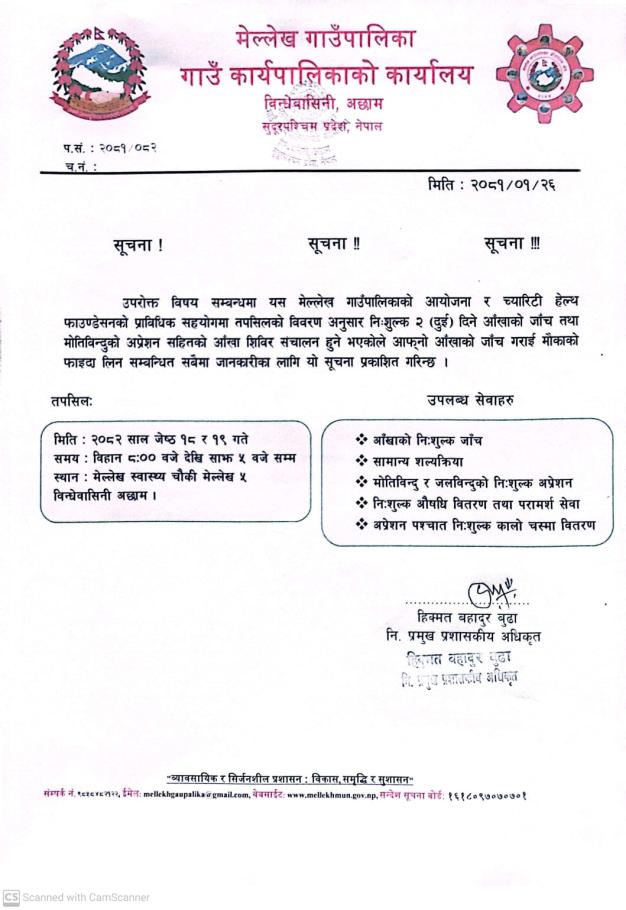 मेल्लेख गाउँपालिका
गाउँ कार्यपालिकाको कार्यालय
विन्धेवासिनी, अछाम
सुदूरपश्चिम प्रदेश, नेपाल
प.सं. : २०८१/०८२
च.नं. :
मिति : २०८१/०१/२६
सूचना ! सूचना !! सूचना !!!
उपरोक्त विषय सम्बन्धमा यस मेल्लेख गाउँपालिकाको आयोजना र च्यारिटी हेल्थ
फाउण्डेसनको प्राविधिक सहयोगमा तपसिलको विवरण अनुसार निःशुल्क २ (दुई) दिने आँखाको जाँच तथा
मोतिविन्दुको अप्रेशन सहितको आँखा शिविर संचालन हुने भएकोले आफ्नो आँखाको जाँच गराई मौकाको
फाइदा लिन सम्बन्धित सबैमा जानकारीका लागि यो सूचना प्रकाशित गरिन्छ ।
तपसिलः
मिति : २०८२ साल जेष्ठ १८ र १९ गते
समय : विहान ८:०० वजे देखि साझ ५ वजे सम्म
स्थान : मेल्लेख स्वास्थ्य चौकी मेल्लेख ५
विन्धेवासिनी अछाम ।
उपलब्ध सेवाहरु
❖ आँखाको निःशुल्क जाँच
❖ सामान्य शल्यक्रिया
❖ मोतिविन्दु र जलविन्दुको निःशुल्क अप्रेशन
❖ निःशुल्क औषधि वितरण तथा परामर्श सेवा
❖ अप्रेशन पश्चात निःशुल्क कालो चस्मा वितरण
हिक्मत बहादुर बुढा
नि. प्रमुख प्रशासकीय अधिकृत
हिक्मत बहादुर बुढा
नि. प्रमुख प्रशासकीय अधिकृत
"व्यावसायिक र सिर्जनशील प्रशासन : विकास, समृद्धि र सुशासन"
सम्पर्क नं. ईमेल: mellekhgaupalika@gmail.com, वेबसाईट: www.mellekhmun.gov.np, सन्देश सूचना बोर्ड: १६१८०९७०७०७०१
CS Scanned with CamScanner